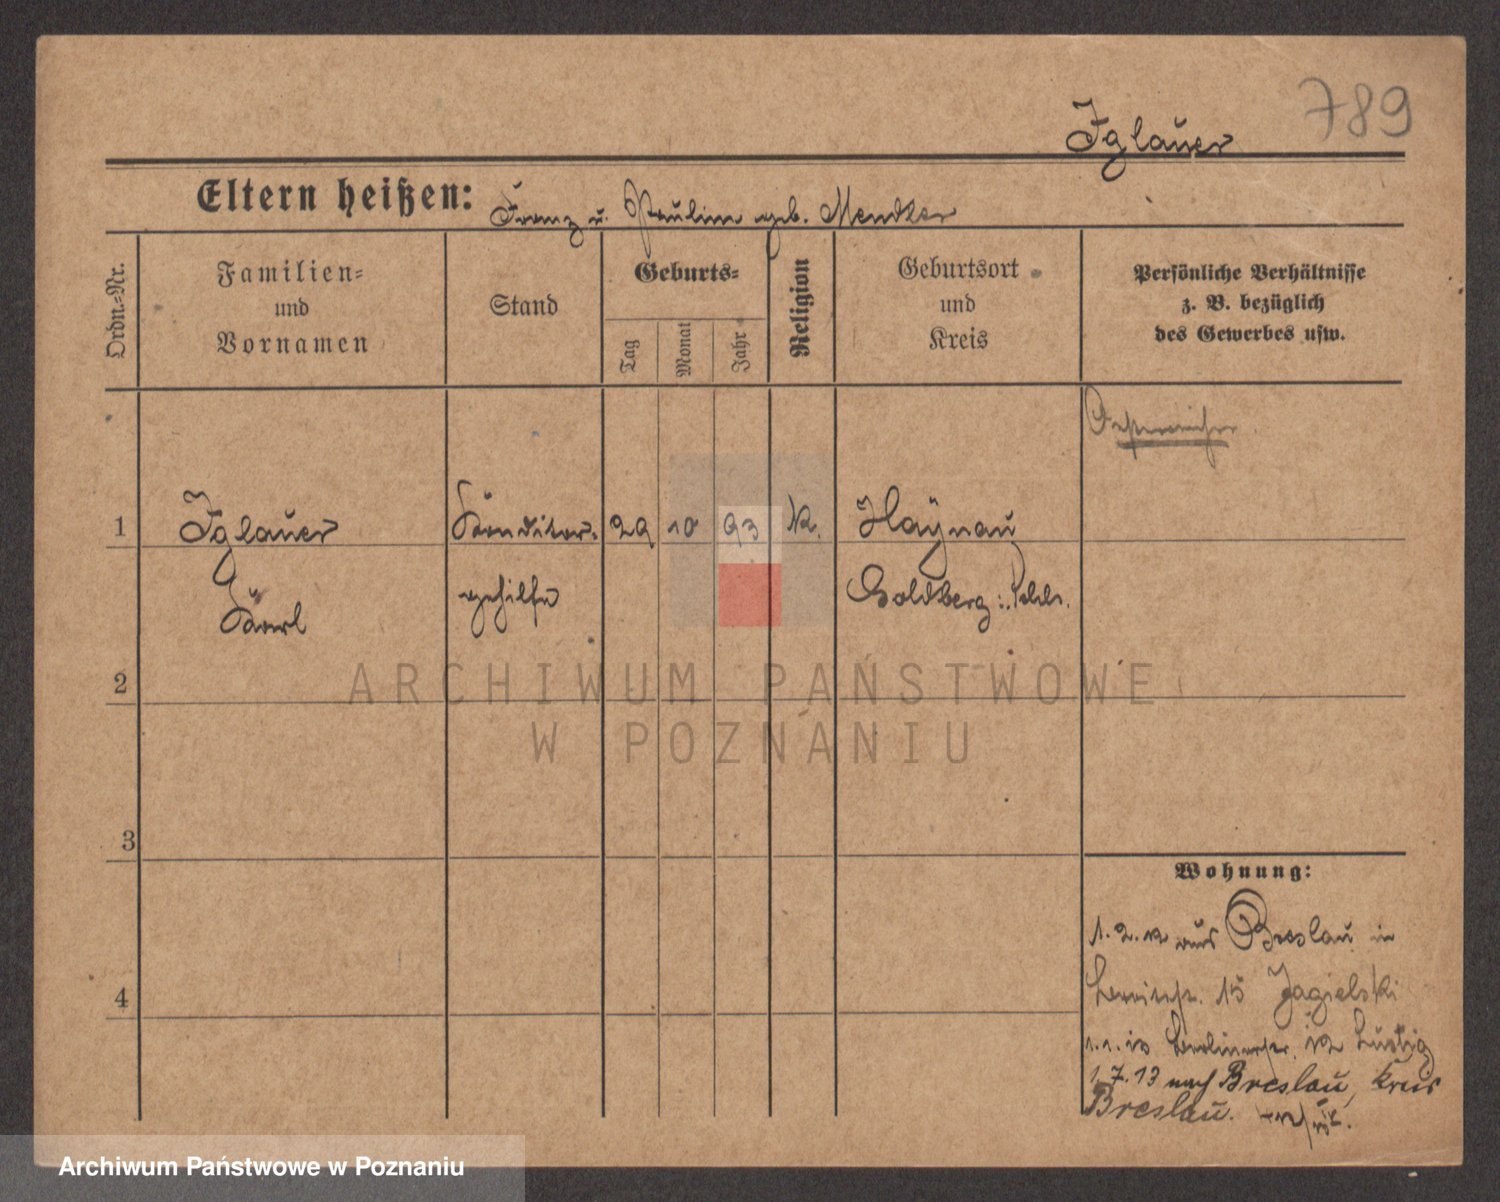 789
Iglauer
Eltern heißen: Franz u. Pauline geb. Mendler
Ordn.-Nr.
Familien-
und
Vornamen
Stand
Geburts-
Tag
Monat
Jahr
Religion
Geburtsort
und
Kreis
Persönliche Verhältnisse
z. B. bezüglich
des Gewerbes usw.
Oesterreicher
1 Iglauer Konditor- 29 10 93 K. Haÿnau
Karl gehilfe Goldberg
2
3
4
Wohnung:
1.2.12 aus Breslau in
15 Jagielski
1.1.13 Berlinerstr. 12 Lustig
1.7.13 nach Breslau, Kreis
Breslau.
ARCHIWUM PAŃSTWOWE
W POZNANIU
Archiwum Państwowe w Poznaniu